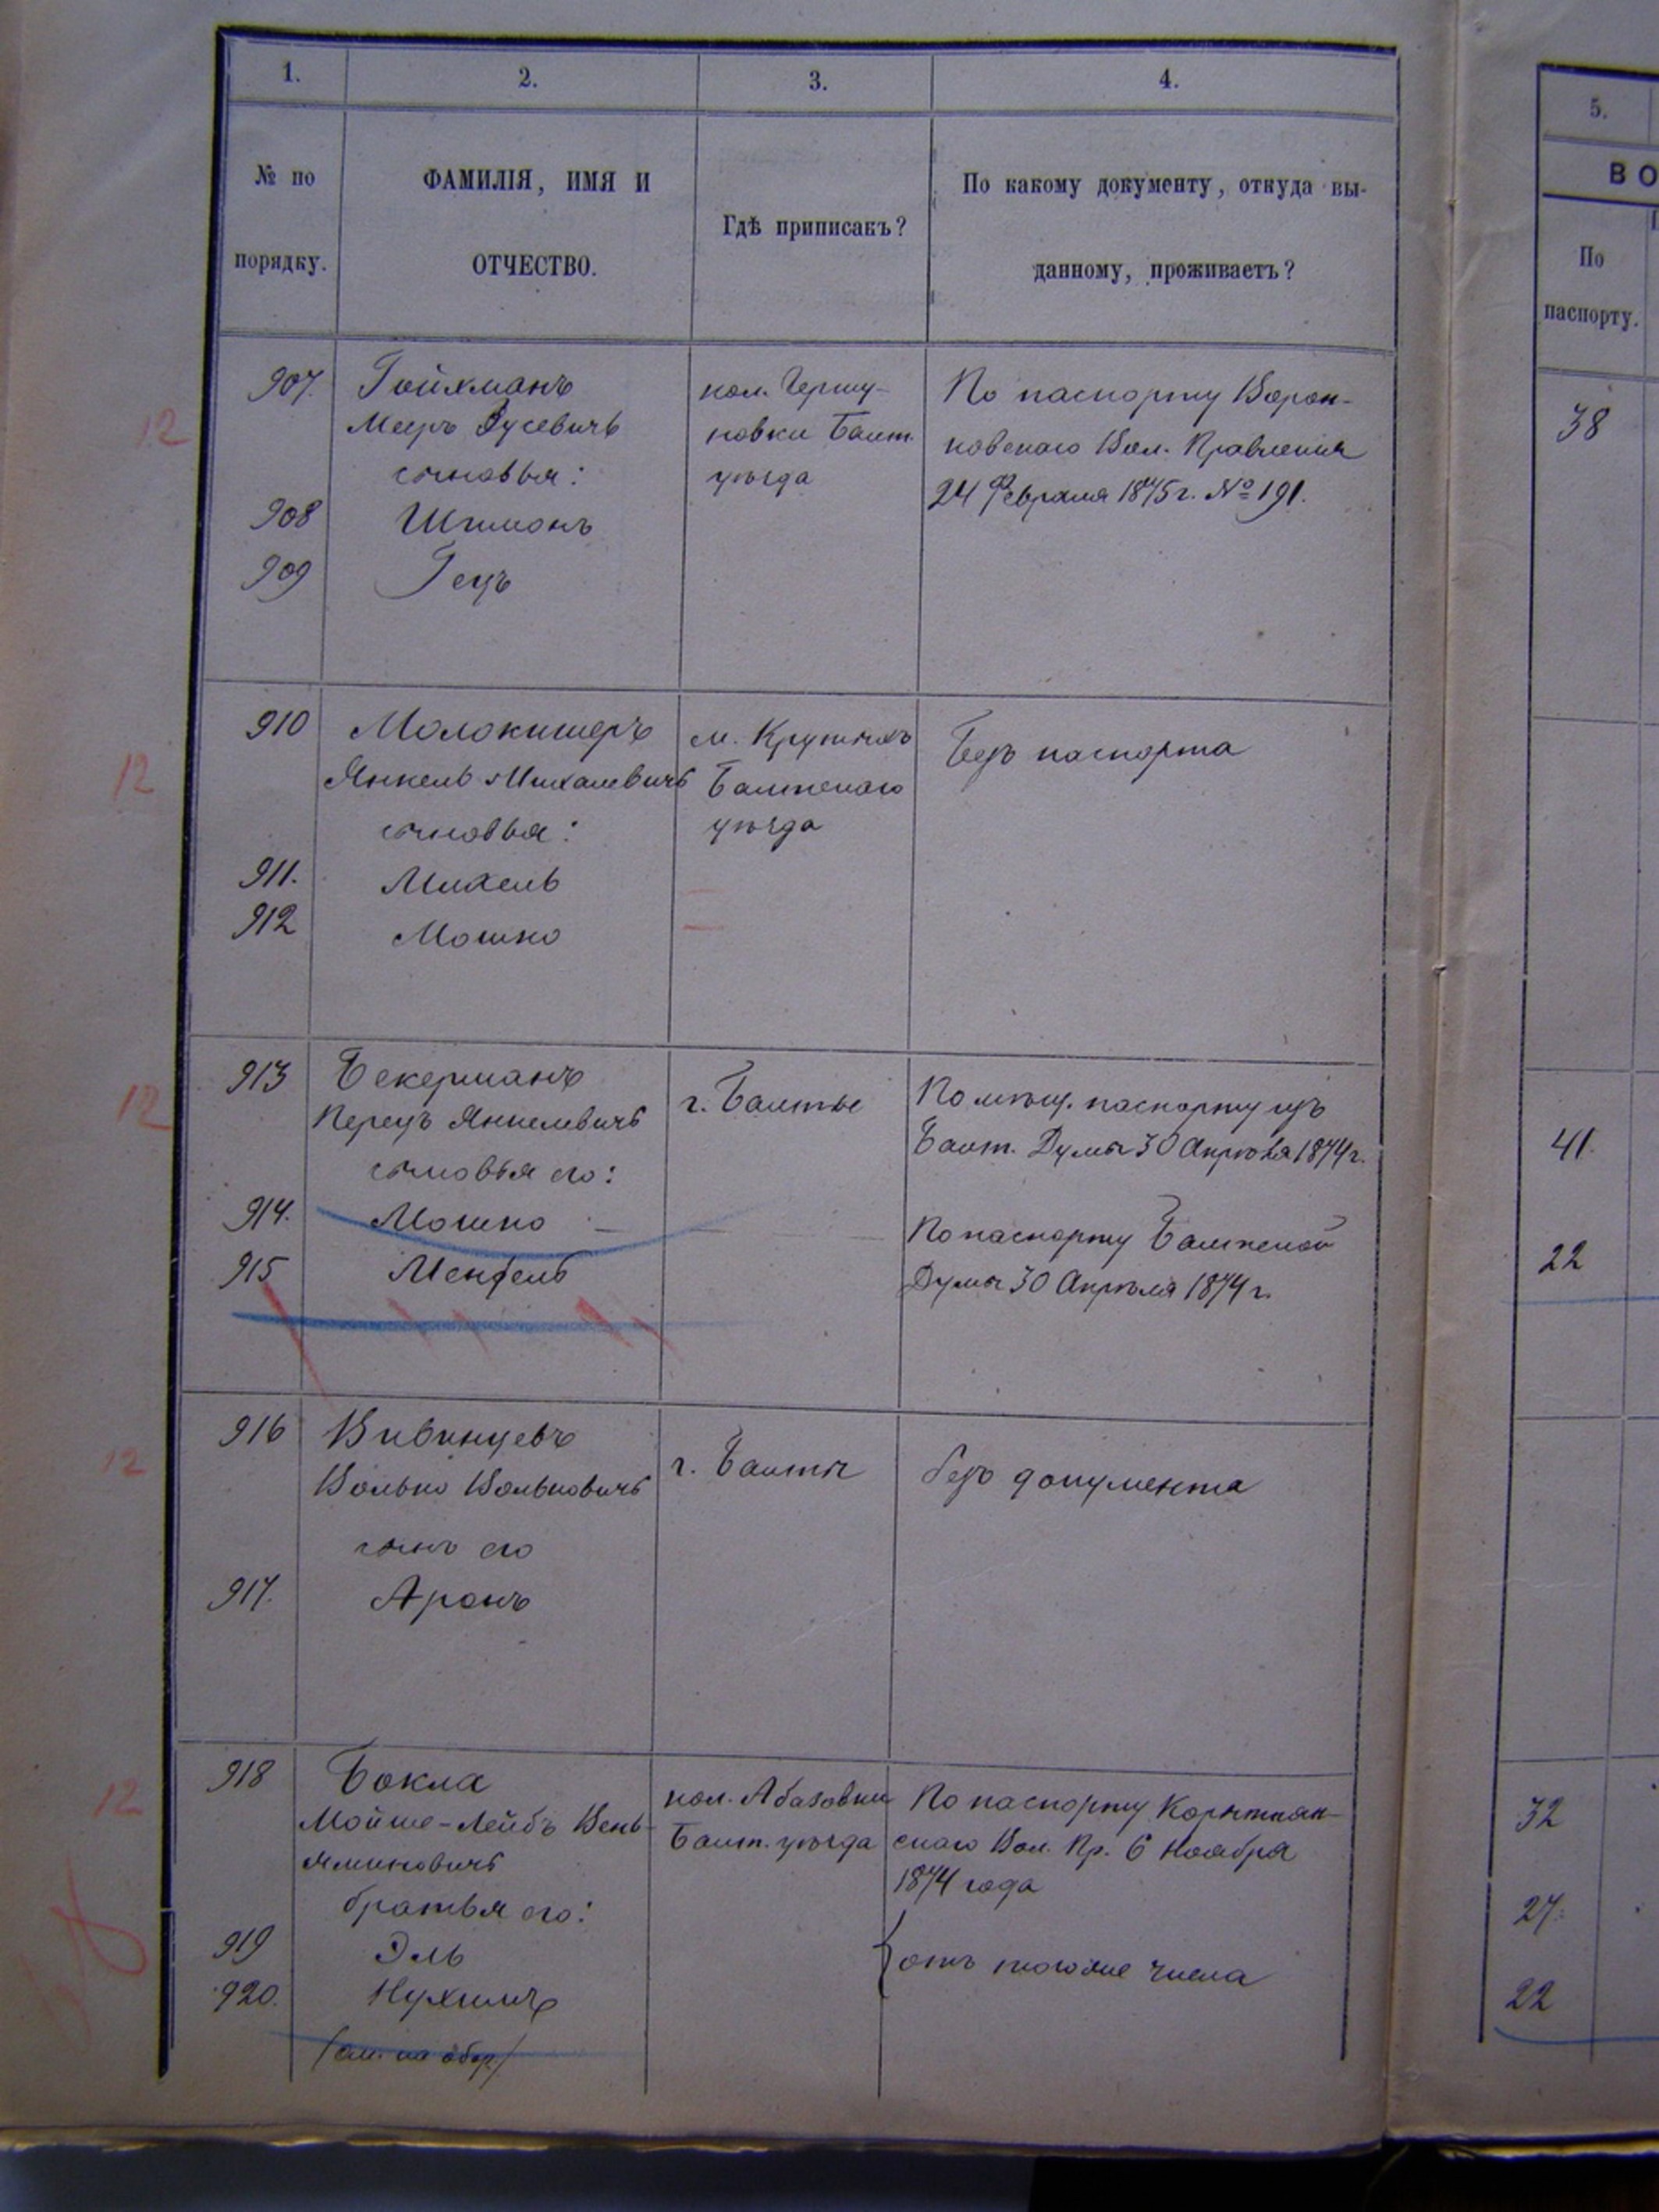 1.
2.
3.
4.
5.
№ по
порядку.
ФАМИЛІЯ, ИМЯ И
ОТЧЕСТВО.
Гдѣ приписанъ?
По какому документу, откуда вы-
данному, проживаетъ?
ВО
По
паспорту.
907.
Гойхманъ
Мееръ Зусевичъ
сыновья:
908
Шимонъ
909
Гецъ
кол. Гершу-
новки Балт.
уѣзда
По паспорту Ворон-
ковскаго Вол. Правленія
24 Февраля 1875 г. № 191.
38
910
Молокишеръ
Янкель Михалевичъ
сыновья:
911.
Михель
912
Мошко
м. Крутыхъ
Балтскаго
уѣзда
Безъ паспорта
913
Бекерманъ
Перецъ Янкелевичъ
сыновья его:
914.
Мошко
915
Мендель
г. Балты
По мѣщ. паспорту изъ
Балт. Думы 30 Апрѣля 1874 г.
По паспорту Балтской
Думы 30 Апрѣля 1874 г.
41
22
916
Вивинцевъ
Волько Вольковичъ
сынъ его
917.
Аронъ
г. Балты
безъ документа
918
Бокла
Мойше-Лейбъ Вень-
яминовичъ
братья его:
919
Эль
920.
Нухимъ
/см. на обор./
кол. Абазовки
Балт. уѣзда
По паспорту Корытнян-
скаго Вол. Пр. 6 Ноября
1874 года
отъ того же числа
32
27
22
12
12
12
12
12